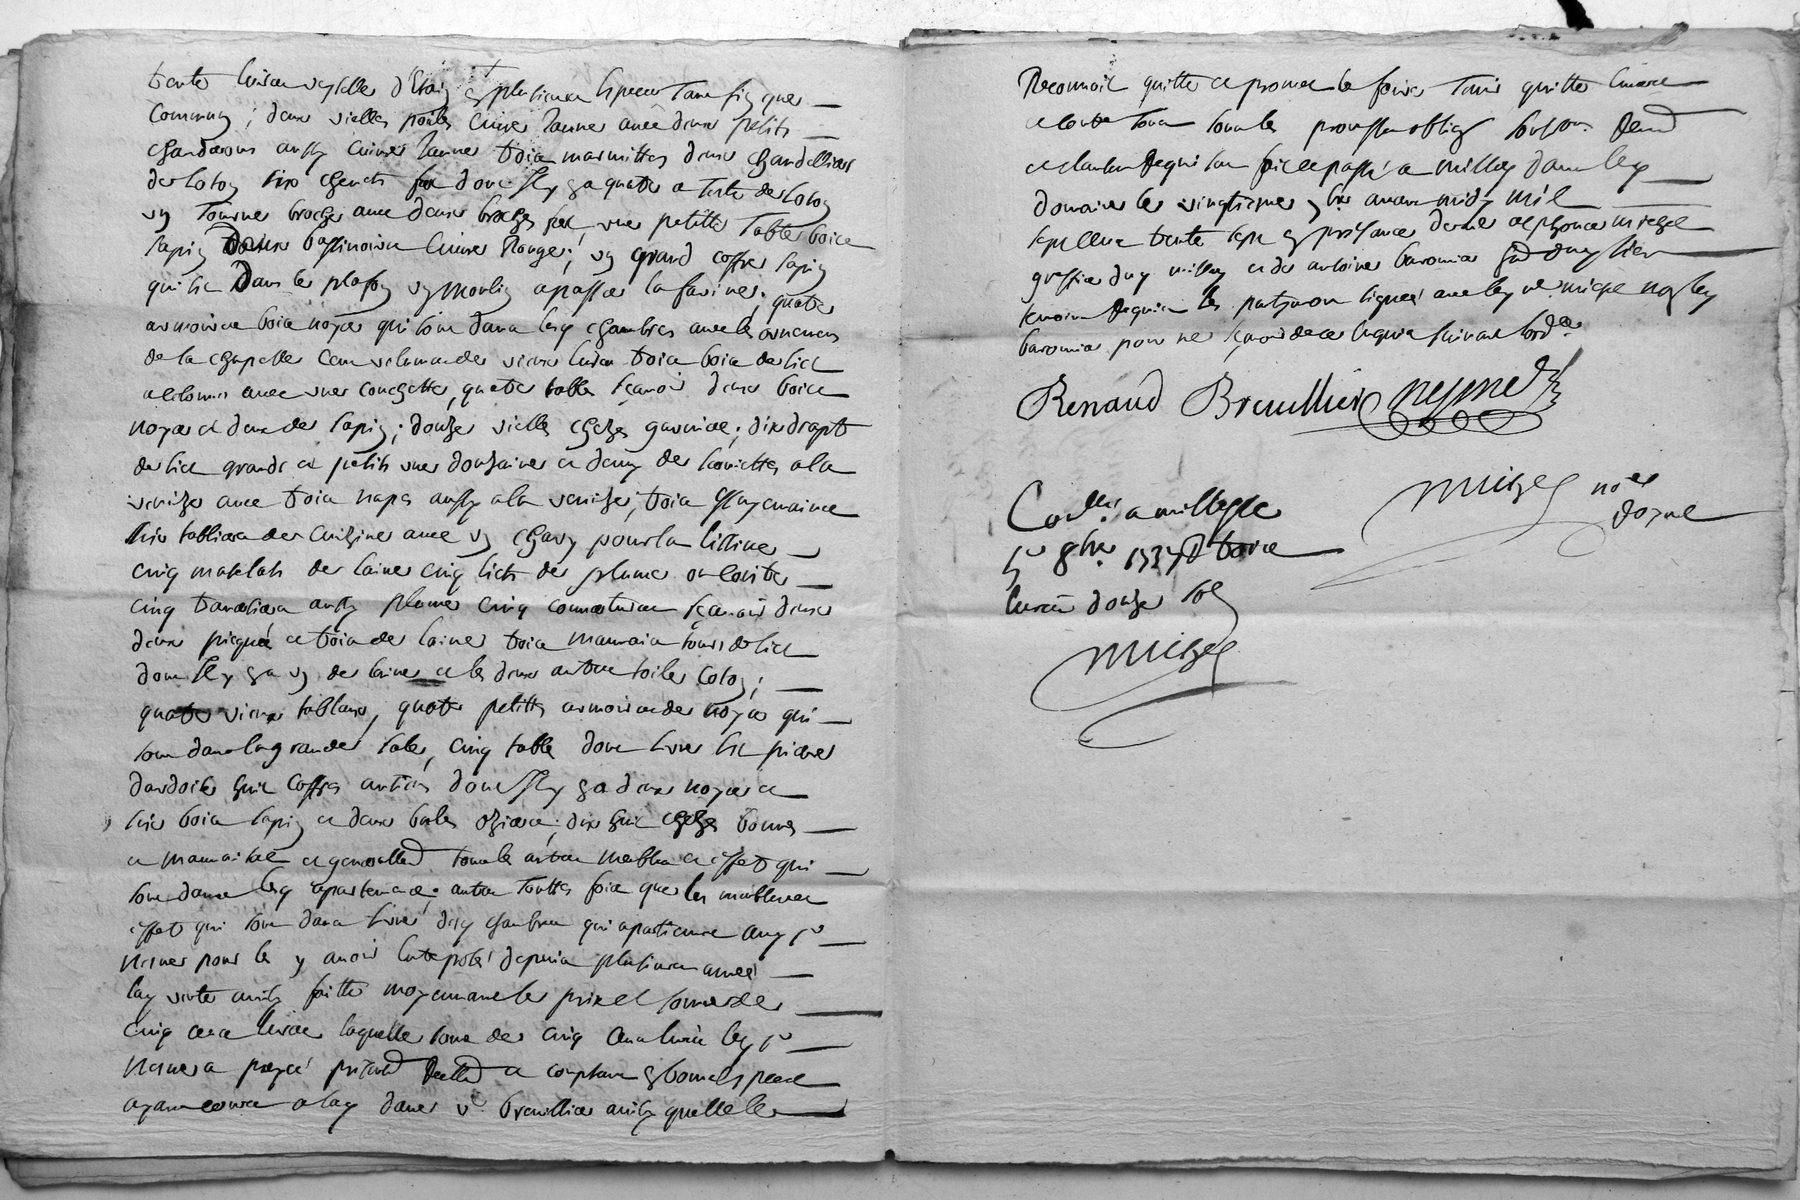 trente livres vesselles d'Etaing & plusieurs especes tant fin que
commung; deux vielles poiles cuivre Janne avec deux petits
chauderons aussy cuivre Janne trois marmittes deux chandelliers
de loton six chenets fer dont Il y en a quatre a teste de loton
un tourne broche avec deux broches fer, une petitte table bois
sapin deux bassinoires cuivre Rouge; un grand coffre sapin
qui sert dans le un moulin a passer la farine; quatre
armoires bois noyer qui sont dans les chambres avec les ornemens
de la chapelle cent volumes de vieux livres trois bois de lict
a colonnes avec une couchette, quatre table sçavoir deux bois
noyer et deux de sapin; douze vielles chezes garnies; dix drapt
de lict grands et petits une douzaine et demy de serviettes a la
venize avec trois napes aussy a la venize, trois Essuyemains
six tabliers de cuizine avec un pour la
cinq matelats de laine cinq licts de plume ou coitre
cinq traversiers aussy plume cinq couvertures sçavoir deux
deux picquée et trois de laine trois mauvais tours de lict
dont Il y en a un de laine et les deux autres toiles coton;
quatre vieux tableaux, quatre petittes armoires de noyer qui
sont dans la grande sale, cinq table dont lune est pierre
dardoise huit coffres antien dont Il y en a deux noyer et
six bois sapin et deux dix huit chezes bonnes
et mauvaises et generallement tous les autres meubles et effets qui
sont dans les apartemens; autres touttes fois que les meubles et
effets qui sont dans lune desd chambres qui apartienne aud sr
neme pour les y avoir Entreposé depuis plusieurs années
lad vente ainsy faitte moyennant le prix et somme de
cinq cens livres laquelle somme de cinq cens livres led sr
neme a payé presentement Reellement et comptant En bonnes especes
ayant cours a lad dame ve breuillier ainsy quelle le
Reconnoit quitte et promet le faire tenir quitte Envers
et contre tous sous les promesses obligeons soumissions Renoncons
et clauses Requises fait et passé a millery dans led
domaine le vingtiesme 7bre avant midy mil
sept cens trente sept En presence de me alphonce michel
greffier dud millery et de antoine baronnier dud lieu
temoins Requis les partyes ont signées avec led me michel non led
baronnier pour ne sçavoir de ce Enquis suivant lord.ce
Renaud Breuillier neyme
Con.llé a millery le
1er 8bre 1737 R trois
livres douze sols
Michel nore
royal
Michel